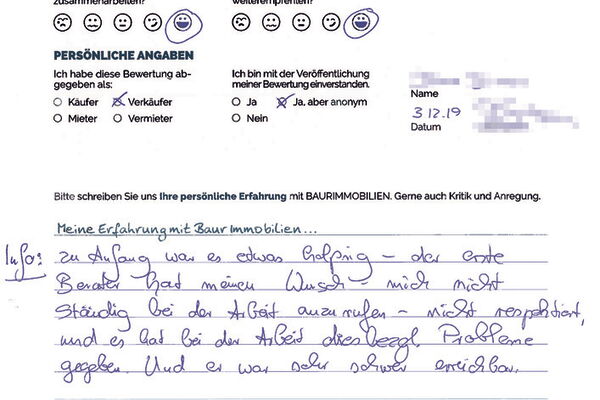 zusammenarbeiten?
weiterempfehlen?
PERSÖNLICHE ANGABEN
Ich habe diese Bewertung ab-
gegeben als:
Käufer Verkäufer
Mieter Vermieter
Ich bin mit der Veröffentlichung
meiner Bewertung einverstanden.
Ja Ja, aber anonym
Nein
Name
3.12.19
Datum
Bitte schreiben Sie uns Ihre persönliche Erfahrung mit BAURIMMOBILIEN. Gerne auch Kritik und Anregung.
Meine Erfahrung mit Baur Immobilien...
Info: Zu Anfang war es etwas holprig – der erste
Berater hat meinen Wunsch – mich nicht
ständig bei der Arbeit anzurufen – nicht respektiert,
und es hat bei der Arbeit diesbezgl. Probleme
gegeben. Und er war sehr schwer erreichbar.